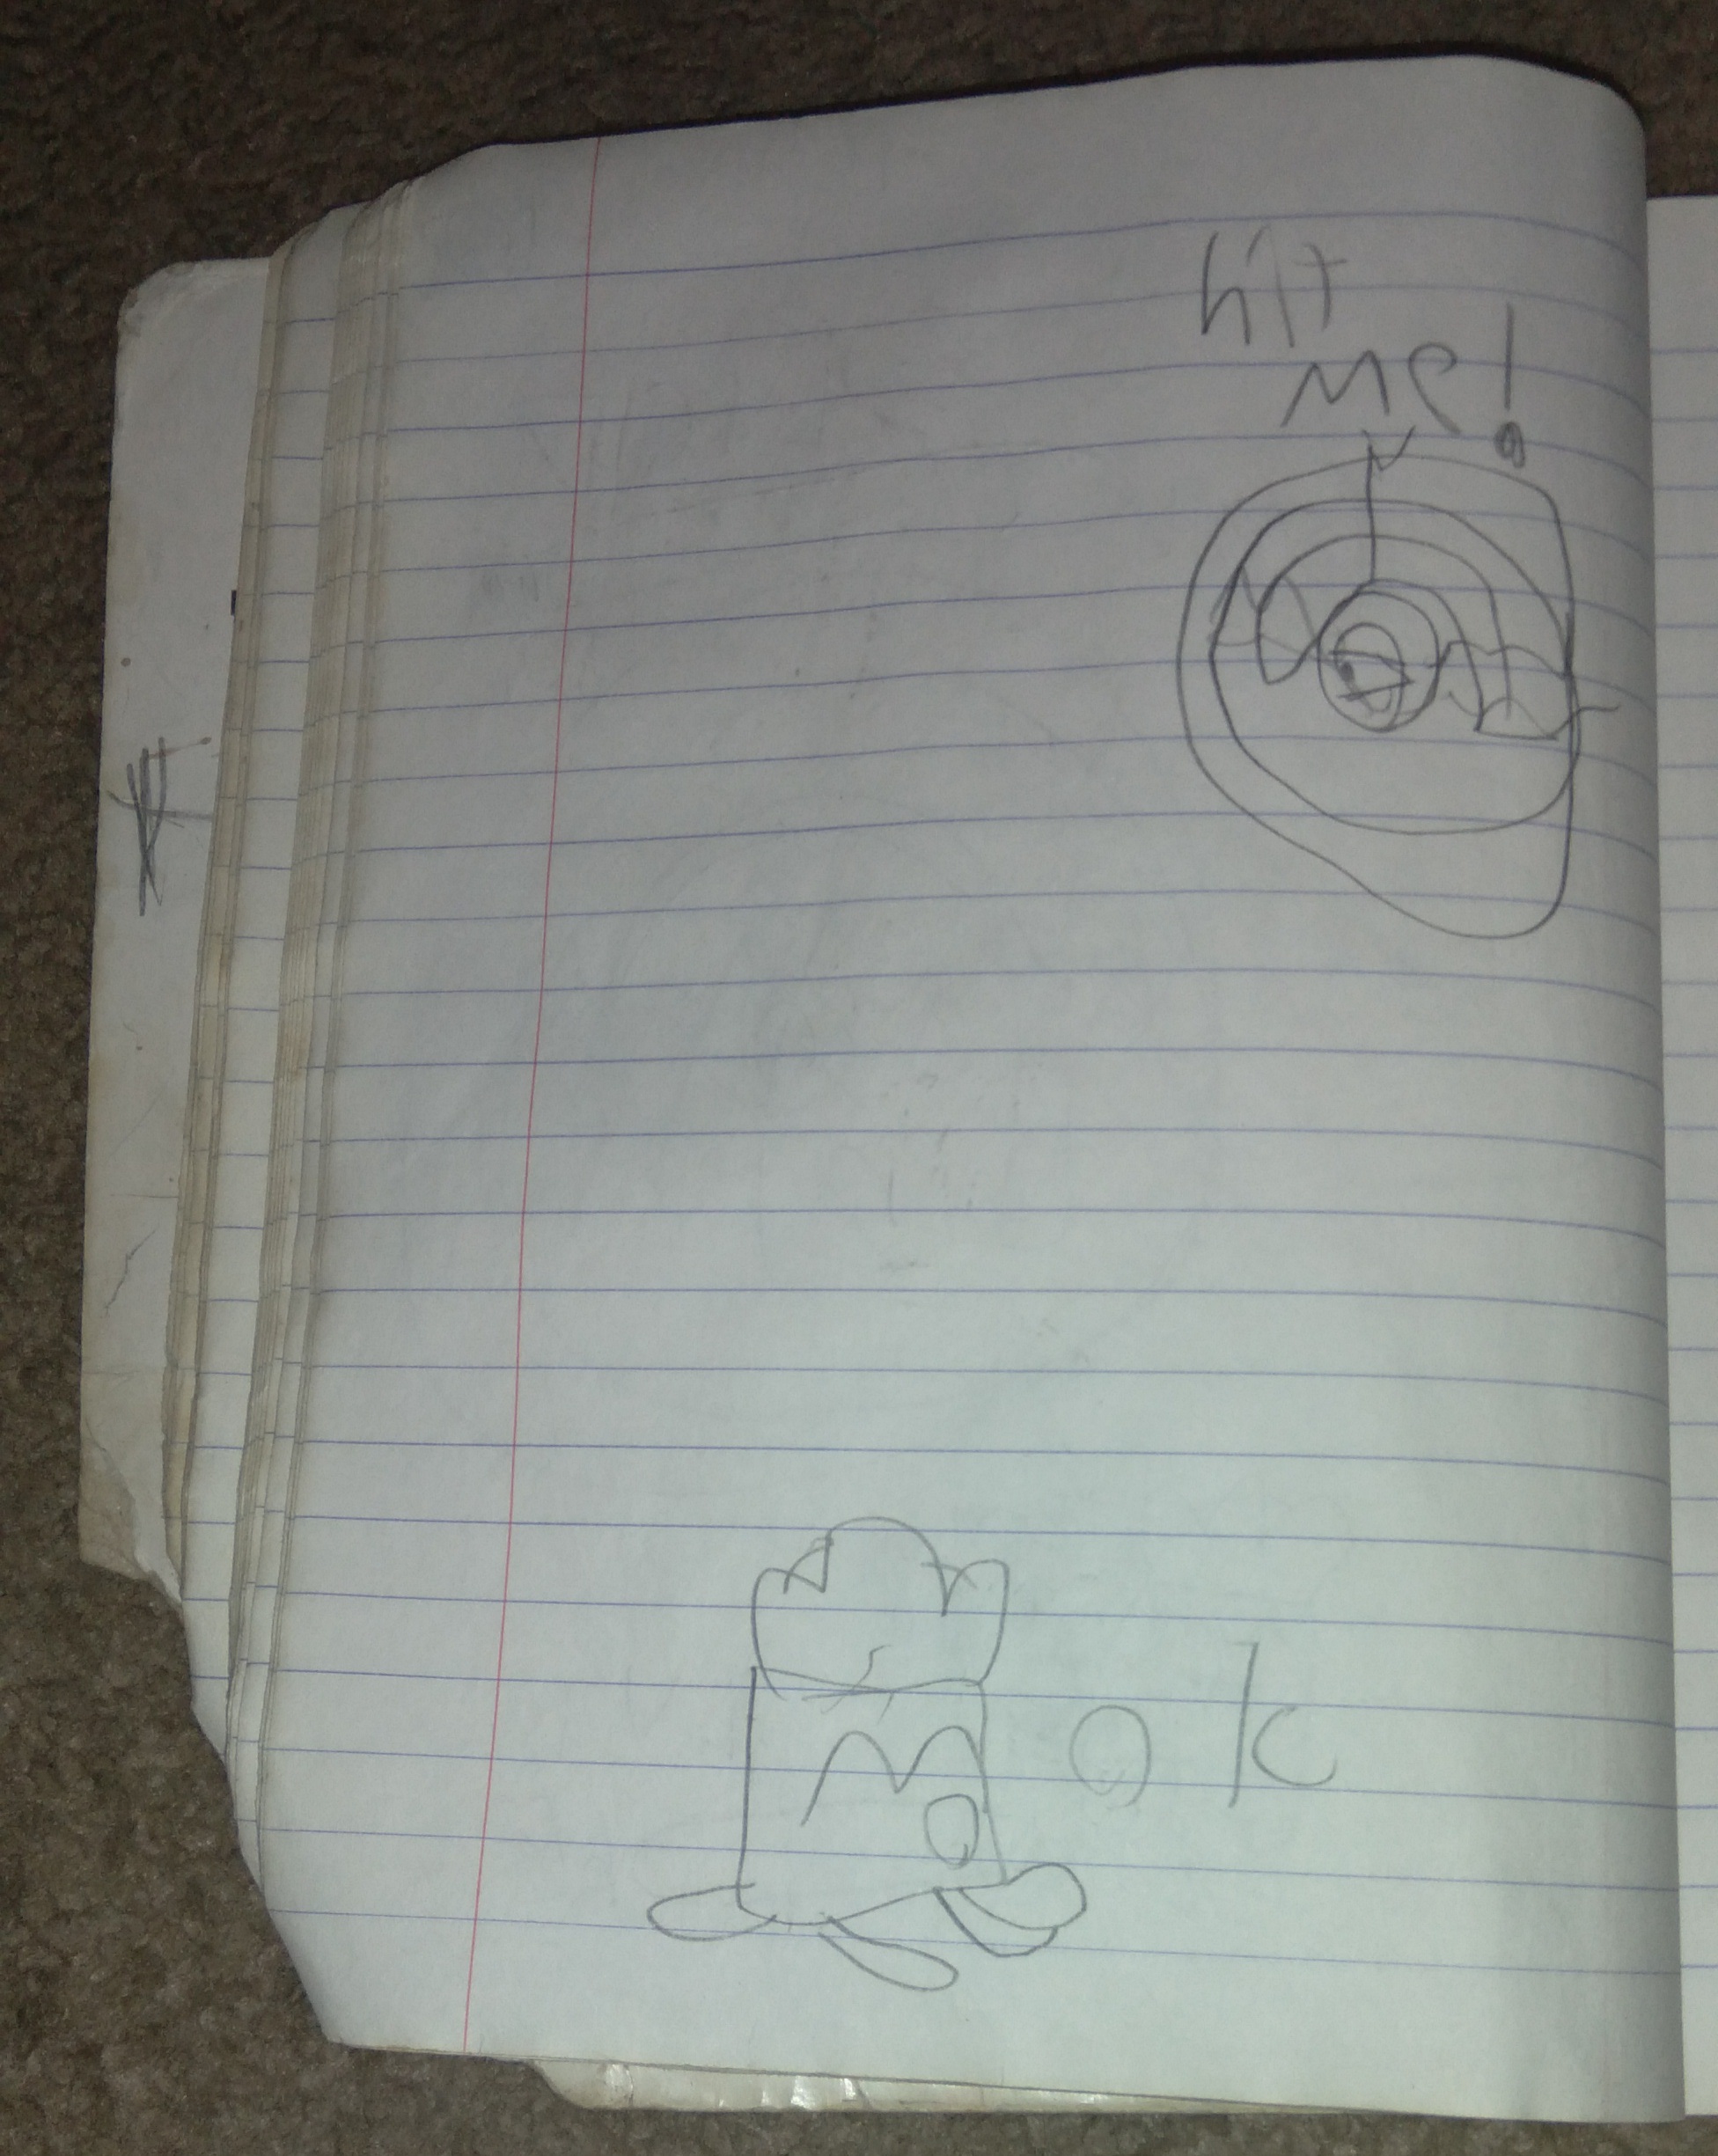 hit
me!
ok